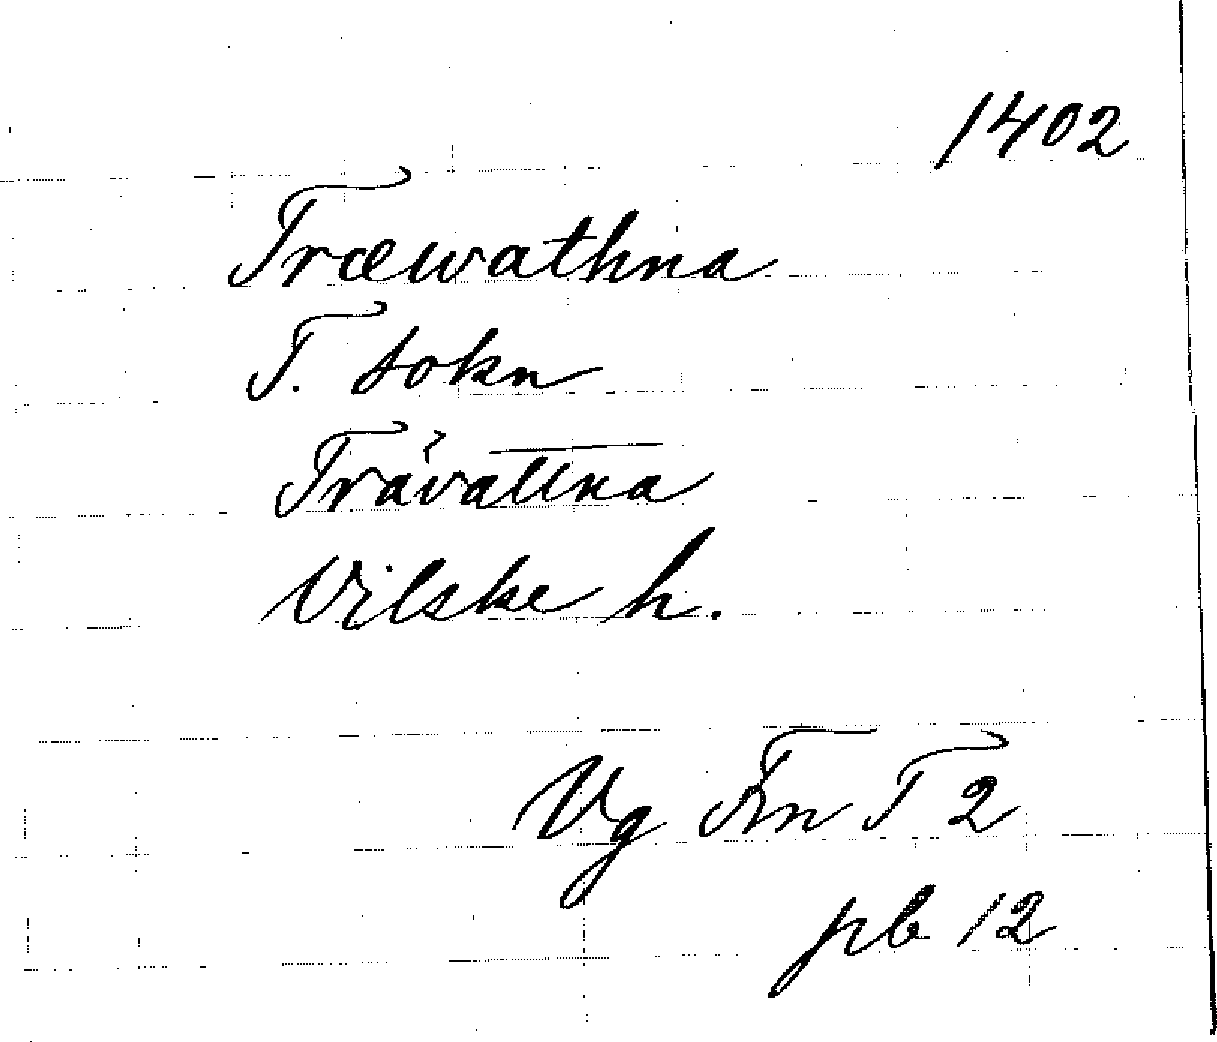 1402
Træwathna
T. sokn
Tråvattna
Vilske h.
Vg Fn T 2
pb 12